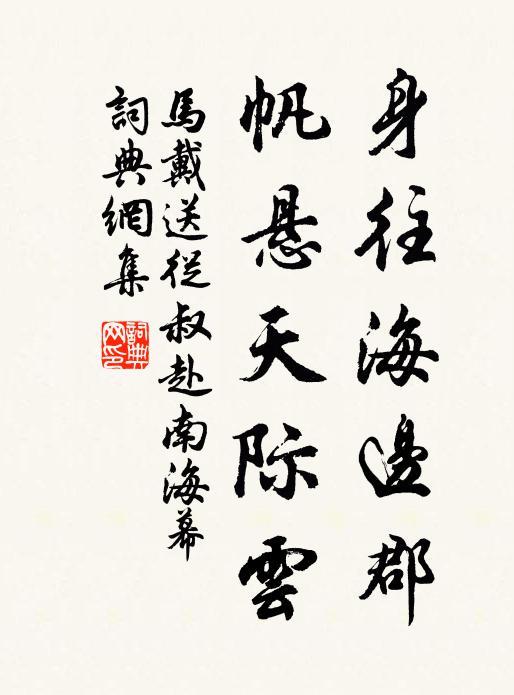 身往海邊郡
帆悬天际雲
馬戴送從叔赴南海幕
詞典網集
詞典網印